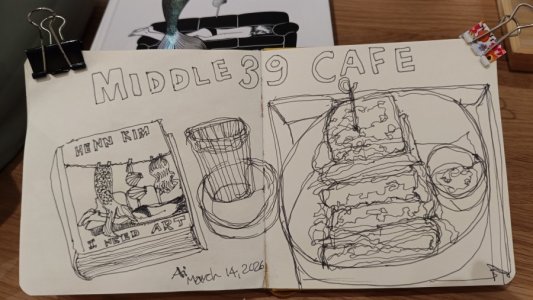 MIDDLE 39 CAFE
HENN KIM
I NEED ART
March 14, 2026